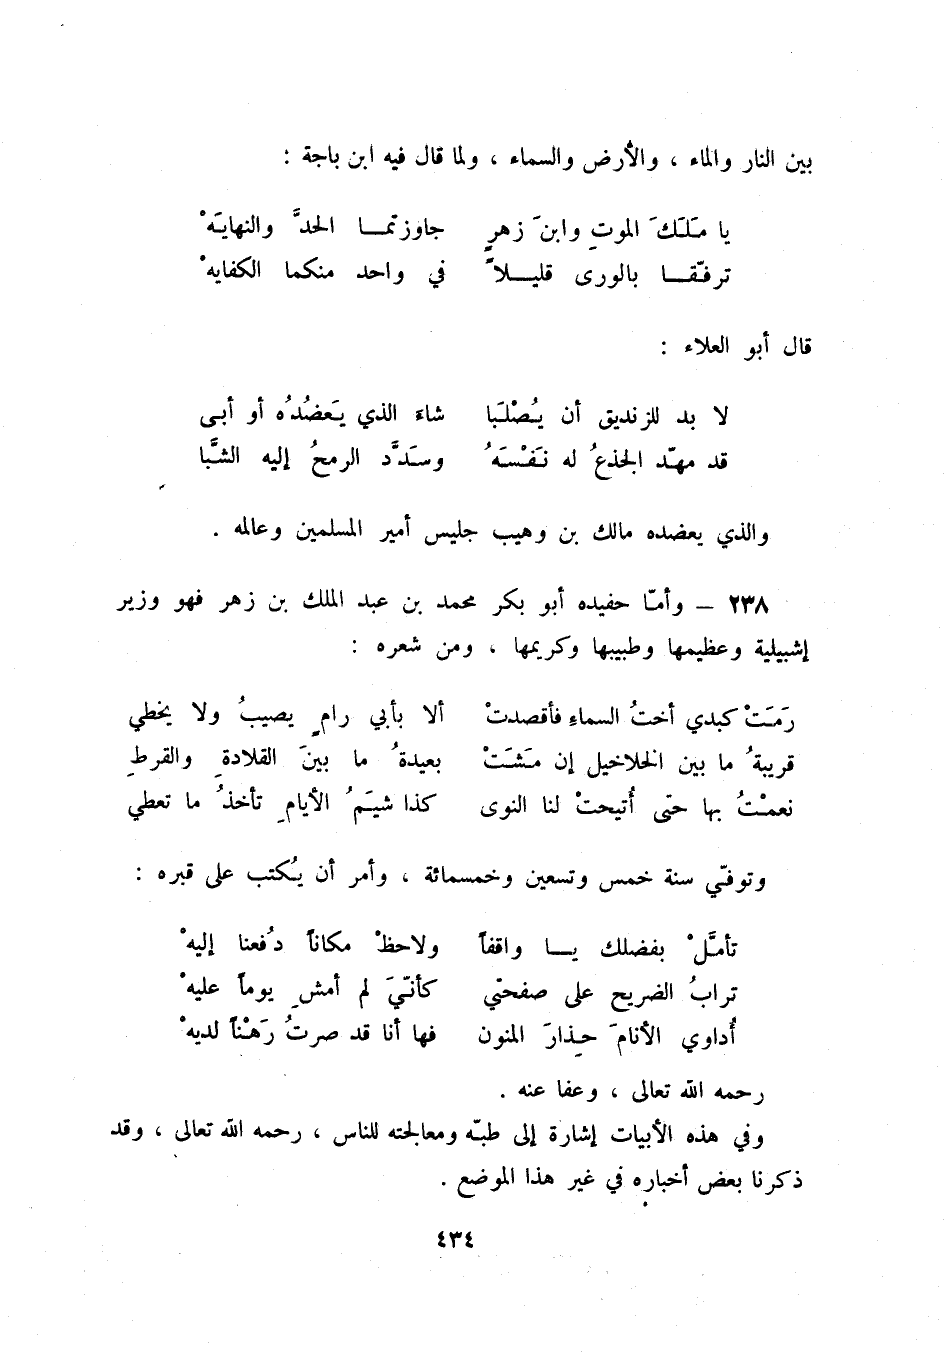 بين النار والماء ، والأرض والسماء ، ولما قال فيه ابن باجة :
يا مَلَكَ الموتِ وابنَ زهرٍ جاوزتمـا الحدَّ والنهايَهْ
ترفّقـا بالورى قليـلاً في واحد منكما الكفايه
قال أبو العلاء :
لا بد للزنديق أن يُصْلَبَا شاءَ الذي يَعضُدُه أو أبى
قد مهّد الجذعُ له نَفْسَهُ وسَدَّد الرمحُ إليه الشَّبا
والذي يعضده مالك بن وهيب جليس أمير المسلمين وعالمه .
٢٣٨ – وأمّا حفيده أبو بكر محمد بن عبد الملك بن زهر فهو وزير
إشبيلية وعظيمها وطبيبها وكريمها ، ومن شعره :
رَمَتْ كبدي أختُ السماءِ فأقصدتْ ألا بأبي رامٍ يصيبُ ولا يخطي
قريبةُ ما بين الخلاخيل إن مَشَتْ بعيدةُ ما بينَ القلادةِ والقرطِ
نعمْتُ بها حتى أُتيحتْ لنا النوى كذا شيَمُ الأيامِ تأخذُ ما تعطي
وتوفّي سنة خمس وتسعين وخمسمائة ، وأمر أن يُكتب على قبره :
تأمَّلْ بفضلك يـا واقفاً ولاحظْ مكاناً دُفعنا إليهْ
ترابُ الضريح على صفحتي كأنّيَ لم أمشِ يوماً عليهْ
أُداوي الأنامَ حِذارَ المنون فها أنا قد صرتُ رَهْناً لديهْ
رحمه الله تعالى ، وعفا عنه .
وفي هذه الأبيات إشارة إلى طبّه ومعالجته للناس ، رحمه الله تعالى ، وقد
ذكرنا بعض أخباره في غير هذا الموضع .
٤٣٤